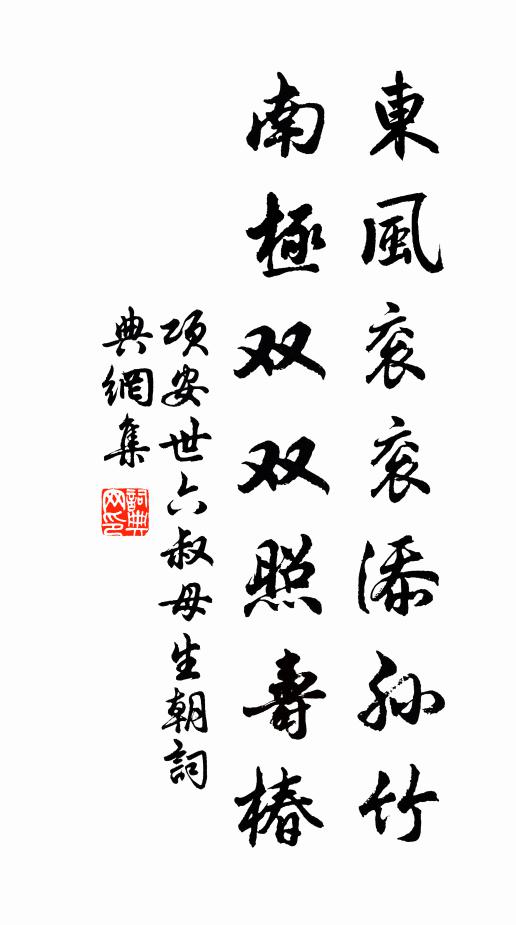 東風衮衮添孙竹
南極双双照壽椿
项安世六叔母生朝詞
典網集
詞典网印